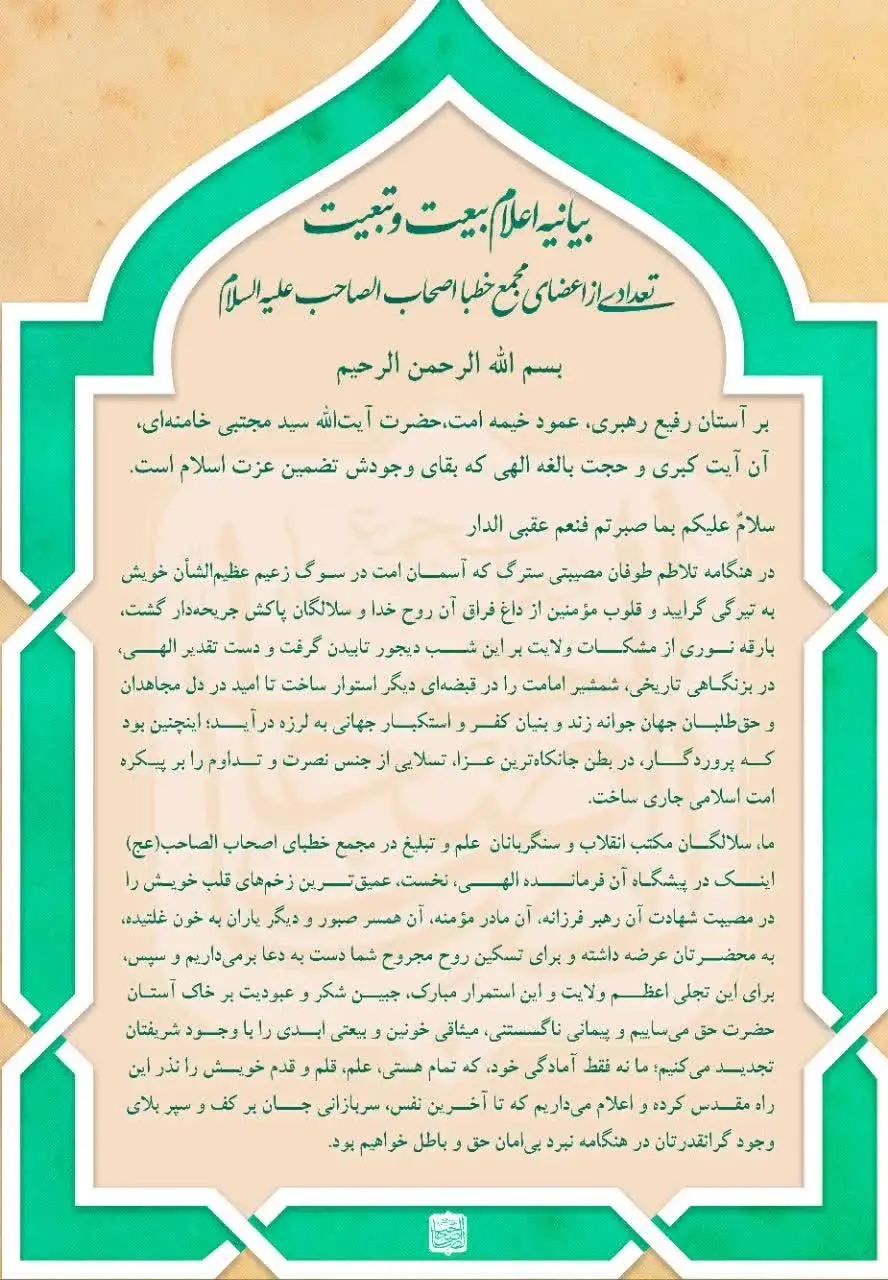 بیانیه اعلام بیعت و تبعیت
تعدادی از اعضای مجمع خطبا اصحاب الصاحب علیه السلام
بسم الله الرحمن الرحیم
بر آستان رفیع رهبری، عمود خیمه امت،حضرت آیت‌الله سید مجتبی خامنه‌ای،
آن آیت کبری و حجت بالغه الهی که بقای وجودش تضمین عزت اسلام است.
سلامٌ علیکم بما صبرتم فنعم عقبی الدار
در هنگامه تلاطم طوفان مصیبتی سترگ که آسمـان امت در سـوگ زعیم عظیم‌الشأن خویش
به تیرگی گرایید و قلوب مؤمنین از داغ فراق آن روح خدا و سلالگان پاکش جریحه‌دار گشت،
بارقه نـوری از مشکـات ولایت بر این شـب دیجور تابیدن گرفت و دست تقدیر الهـی،
در بزنگـاهی تاریخی، شمشیر امامت را در قبضه‌ای دیگر استوار ساخت تا امید در دل مجاهدان
و حق‌طلبـان جهان جوانه زند و بنیان کفـر و استکبـار جهانی به لرزه درآیـد؛ اینچنین بود
کـه پروردگـار، در بطن جانکاه‌ترین عـزا، تسلایی از جنس نصرت و تـداوم را بر پیـکره
امت اسلامی جاری ساخت.
ما، سلالگـان مکتب انقلاب و سنگربانان علم و تبلیغ در مجمع خطبای اصحاب الصاحب(عج)
اینـک در پیشگـاه آن فرمانـده الهـی، نخست، عمیق‌تـرین زخم‌های قلب خویـش را
در مصیبت شهادت آن رهبر فرزانه، آن مادر مؤمنه، آن همسر صبور و دیگر یاران به خون غلتیده،
به محضـرتان عرضه داشته و برای تسکین روح مجروح شما دست به دعا برمی‌داریم و سپس،
برای این تجلی اعظـم ولایت و این استمرار مبارک، جبیـن شکر و عبودیت بر خاک آستـان
حضرت حق می‌ساییم و پیمانی ناگسستنی، میثاقی خونین و بیعتی ابـدی را با وجـود شریفتان
تجدیـد می‌کنیم؛ ما نه فقط آمادگی خود، که تمام هستی، علم، قلم و قدم خویـش را نذر این
راه مقـدس کرده و اعلام می‌داریم که تا آخـرین نفس، سربازانی جـان بر کف و سپر بلای
وجود گرانقدرتان در هنگامه نبرد بی‌امان حق و باطل خواهیم بود.